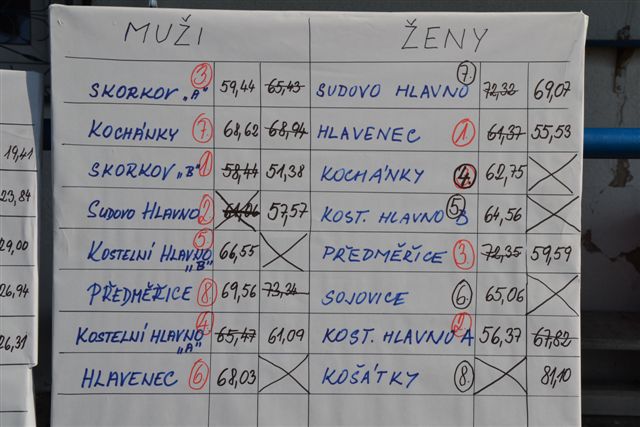 MUŽI ŽENY
SKORKOV „A" 3 59,44 65,43 SUDOVO HLAVNO 7. 72,32 69,07
KOCHÁNKY 7 68,62 68,94 HLAVENEC 1 61,37 55,53
SKORKOV „B" 1 58,44 51,38 KOCHÁNKY 4. 62,75
SUDOVO HLAVNO 2 57,57 KOST. HLAVNO B 5. 64,56
KOSTELNÍ HLAVNO „B" 5 66,55 PŘEDMĚŘICE 3 72,35 59,59
PŘEDMĚŘICE 8 69,56 73,34 SOJOVICE 6. 65,06
KOSTELNÍ HLAVNO „A" 4 65,47 61,09 KOST. HLAVNO A 2 56,37 67,82
HLAVENEC 6 68,03 KOŠÁTKY 8. 81,10
19,41
23,84
29,00
26,94
26,31